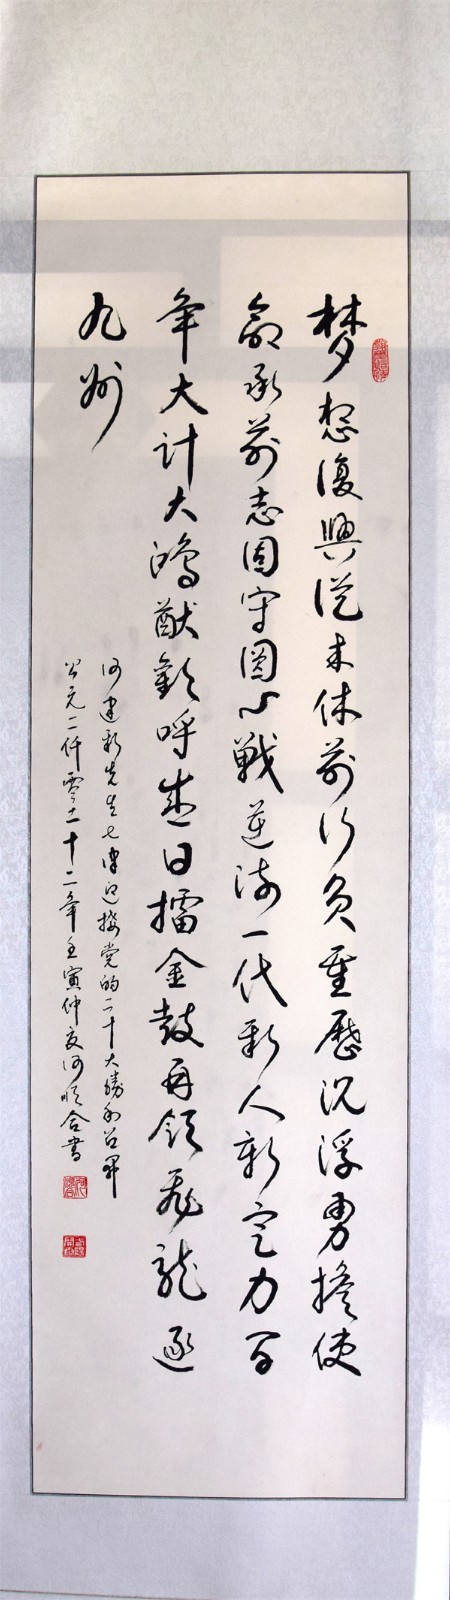 梦想復興從未休前行負重歷沉浮勇擔使
命承前志固守圖心戰逆流一代新人新定力百
年大计大鴻猷歡呼盛日擂金鼓再領飛龍逐
九州
何建新先生七律迎接党的二十大勝利召開
公元二仟零二十二年壬寅仲夏何順合書